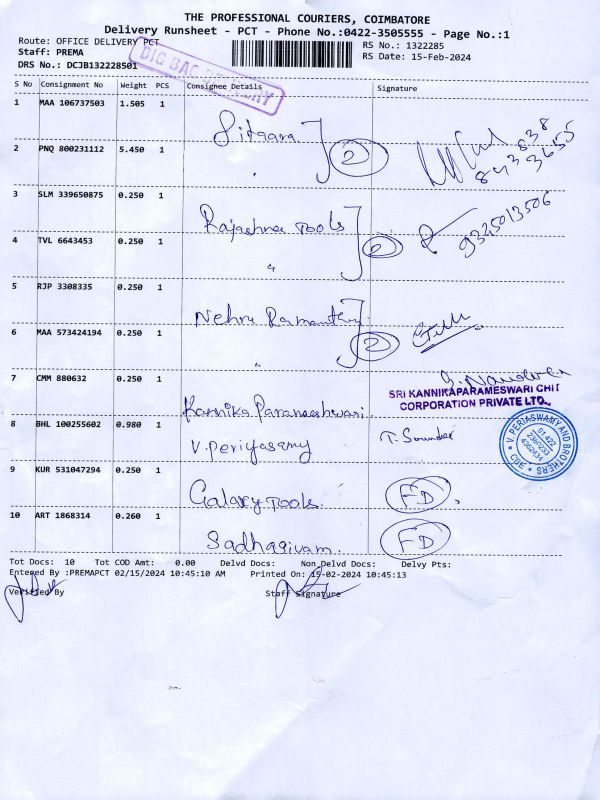 THE PROFESSIONAL COURIERS, COIMBATORE
Delivery Runsheet - PCT - Phone No.:0422-3505555 - Page No.:1
Route: OFFICE DELIVERY PCT
RS No.: 1322285
Staff: PREMA
RS Date: 15-Feb-2024
DRS No.: DCJB132228501
BIG BAG DELIVERY
S No Consignment No Weight PCS Consignee Details Signature
1 MAA 106737503 1.505 1 Sitaara
2 PNQ 800231112 5.450 1 " 2
843838
3655
3 SLM 339650875 0.250 1 Rajeshree Tools
4 TVL 6643453 0.250 1 " 2 9345013506
5 RJP 3308335 0.250 1 Nehru
6 MAA 573424194 0.250 1 " 2
7 CMM 880632 0.250 1 Kannika Parameshwari
SRI KANNIKAPARAMESWARI CHIT
CORPORATION PRIVATE LTD.,
8 BHL 100255602 0.980 1 V. Periyasamy T. Sounder
V. PERIASWAMY AND BROTHERS
* CBE *
9 KUR 531047294 0.250 1 Galaxy Tools FD
10 ART 1868314 0.260 1 Sadhasivam FD
Tot Docs: 10 Tot COD Amt: 0.00 Delvd Docs: Non Delvd Docs: Delvy Pts:
Entered By :PREMAPCT 02/15/2024 10:45:10 AM Printed On: 15-02-2024 10:45:13
Verified By Staff Signature